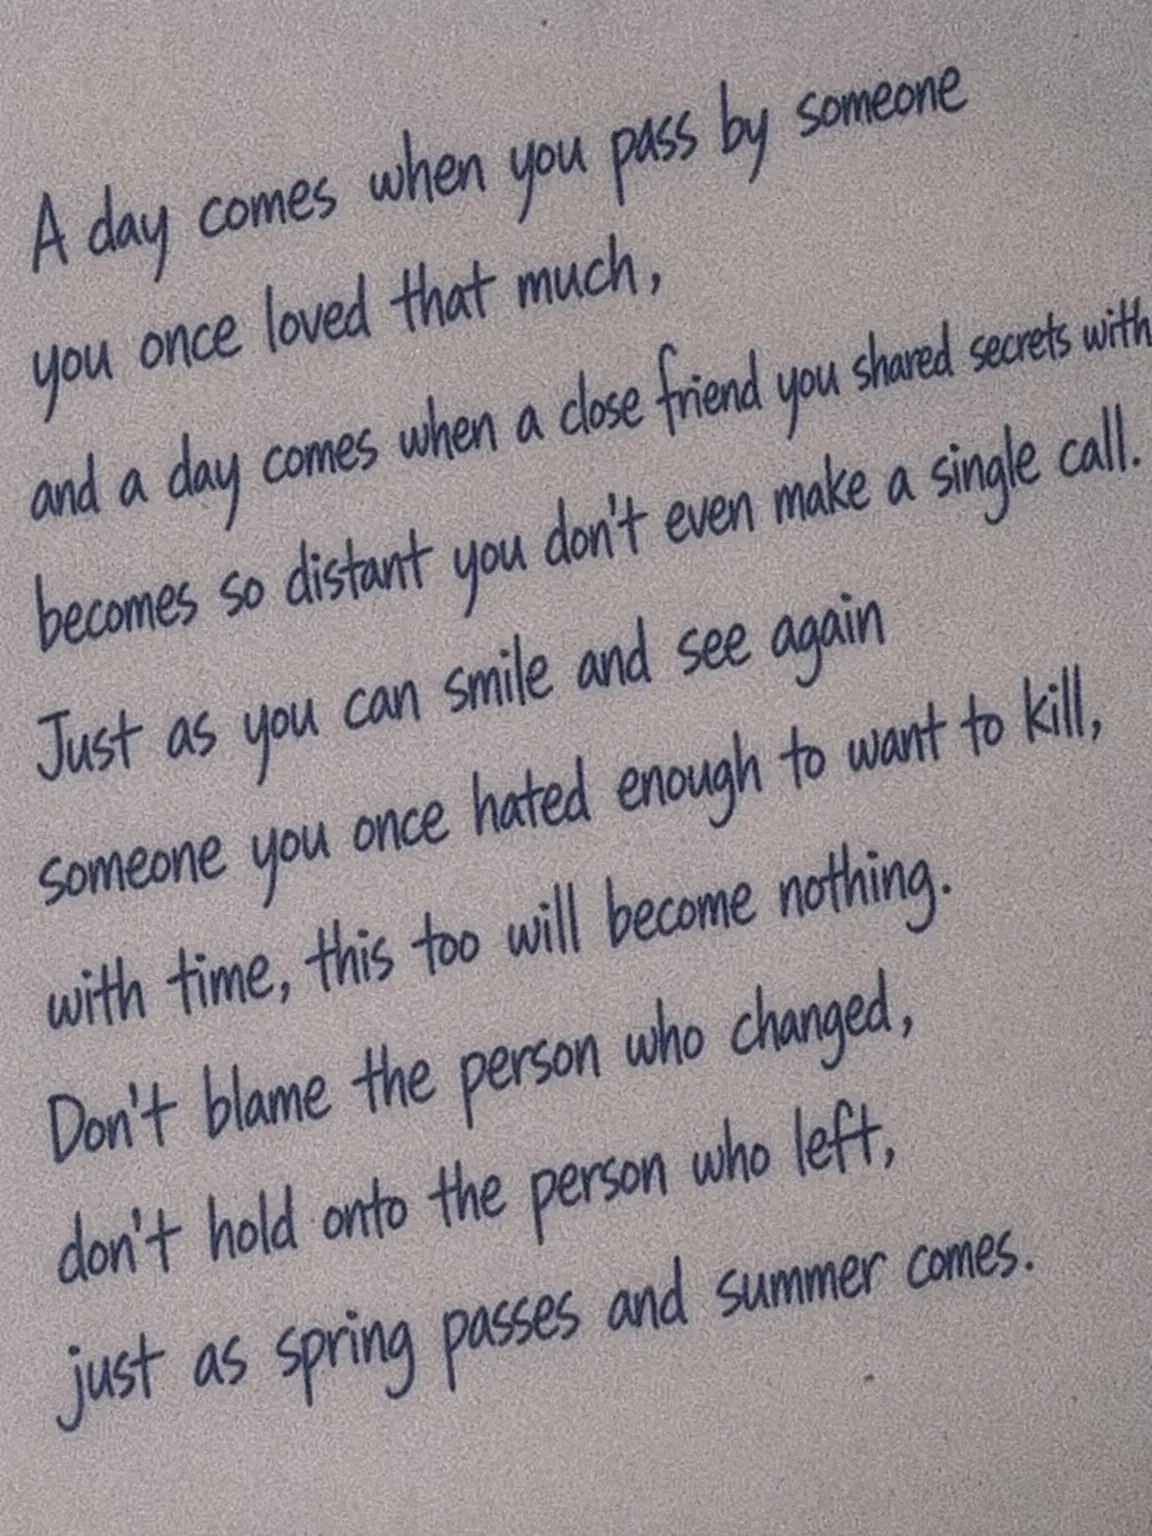 A day comes when you pass by someone
you once loved that much,
and a day comes when a close friend you shared secrets with
becomes so distant you don't even make a single call.
Just as you can smile and see again
someone you once hated enough to want to kill,
with time, this too will become nothing.
Don't blame the person who changed,
don't hold onto the person who left,
just as spring passes and summer comes.